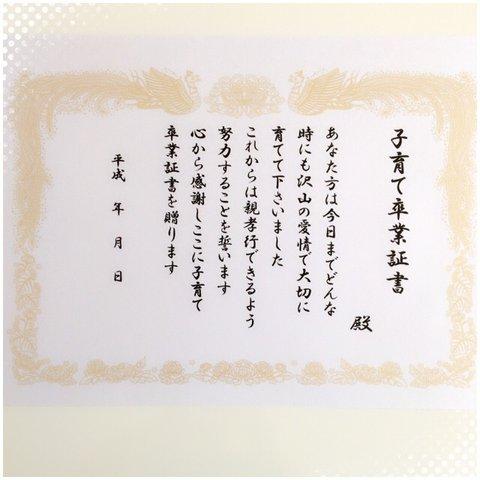 子育て卒業証書
殿
あなた方は今日までどんな
時にも沢山の愛情で大切に
育てて下さいました
これからは親孝行できるよう
努力することを誓います
心から感謝しここに子育て
卒業証書を贈ります
平成　年　月　日